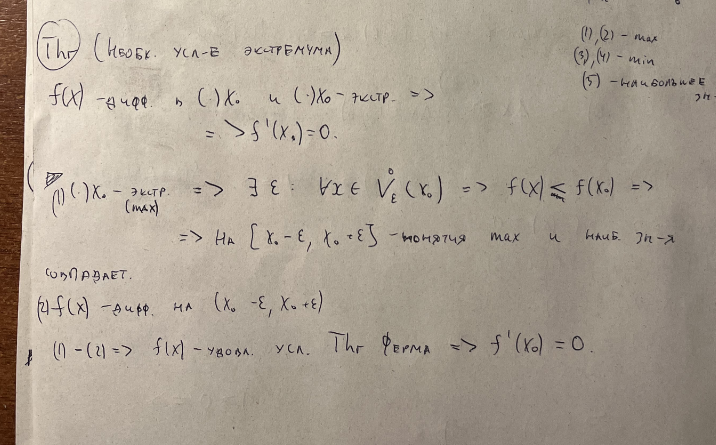 Thr (Необх. усл-е экстремума)
(1),(2) - max
(3),(4) - min
(5) - наибольшее
зн-
f(x) - дифф. в (·)x₀ и (·)x₀ - экстр. =>
=> f'(x₀)=0.
(1) (·)x₀ - экстр. => ∃ ε: ∀x ∈ V̊_ε(x₀) => f(x) ≤ f(x₀) =>
(max)
=> на [x₀-ε, x₀+ε] - понятия max и наиб. зн-я
совпадает.
(2) f(x) - дифф. на (x₀-ε, x₀+ε)
(1)-(2) => f(x) - удовл. усл. Thr Ферма => f'(x₀)=0.